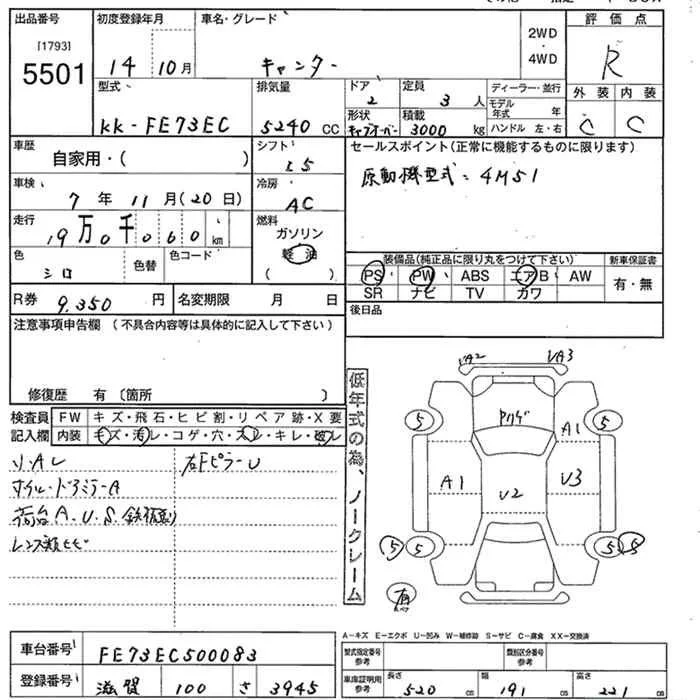 出品番号
[1793]
5501
初度登録年月
14 10月
車名・グレード
キャンター
2WD
・
4WD
評価点
R
外装 内装
C C
型式・
KK-FE73EC
排気量
5240 CC
ドア
2
形状
キャブオーバー
定員
3 人
積載
3000 kg
ディーラー・並行
モデル年式 年
ハンドル 左・右
車歴
自家用・( )
シフト
I5
セールスポイント(正常に機能するものに限ります)
原動機型式:4M51
車検
7年 11月(20日)
冷房
AC
走行
19万0千060 km
燃料
ガソリン
軽油
( )
色
シロ
色替
色コード
装備品(純正品に限り丸をつけて下さい)
PS PW ABS エアB AW
SR ナビ TV カワ
新車保証書
有・無
R券 9.350円
名変期限 月 日
後日品
注意事項申告欄(不具合内容等は具体的に記入して下さい)
修復歴 有〔箇所 〕
検査員記入欄
FW キズ・飛石・ヒビ割・リペア跡・X要
内装 キズ・汚レ・コゲ・穴・スレ・キレ・破レ
ソ.AL 右Fピラー U
ホイル・ドアミラーA
荷台A.U.S.鉄板割り
レンズ類ヒビ
低年式の為、ノークレーム
UA2 UA3
5 5
A1
A1 U3
U2
5 5 5 5
A-キズ E-エクボ U-凹み W-補修跡 S-サビ C-腐食 XX-交換済
車台番号 FE73EC500083
登録番号 滋賀 100 さ 3945
型式指定番号
参考
類別区分番号
参考
車庫証明用
参考
長さ 520 cm
幅 191 cm
高さ 221 cm